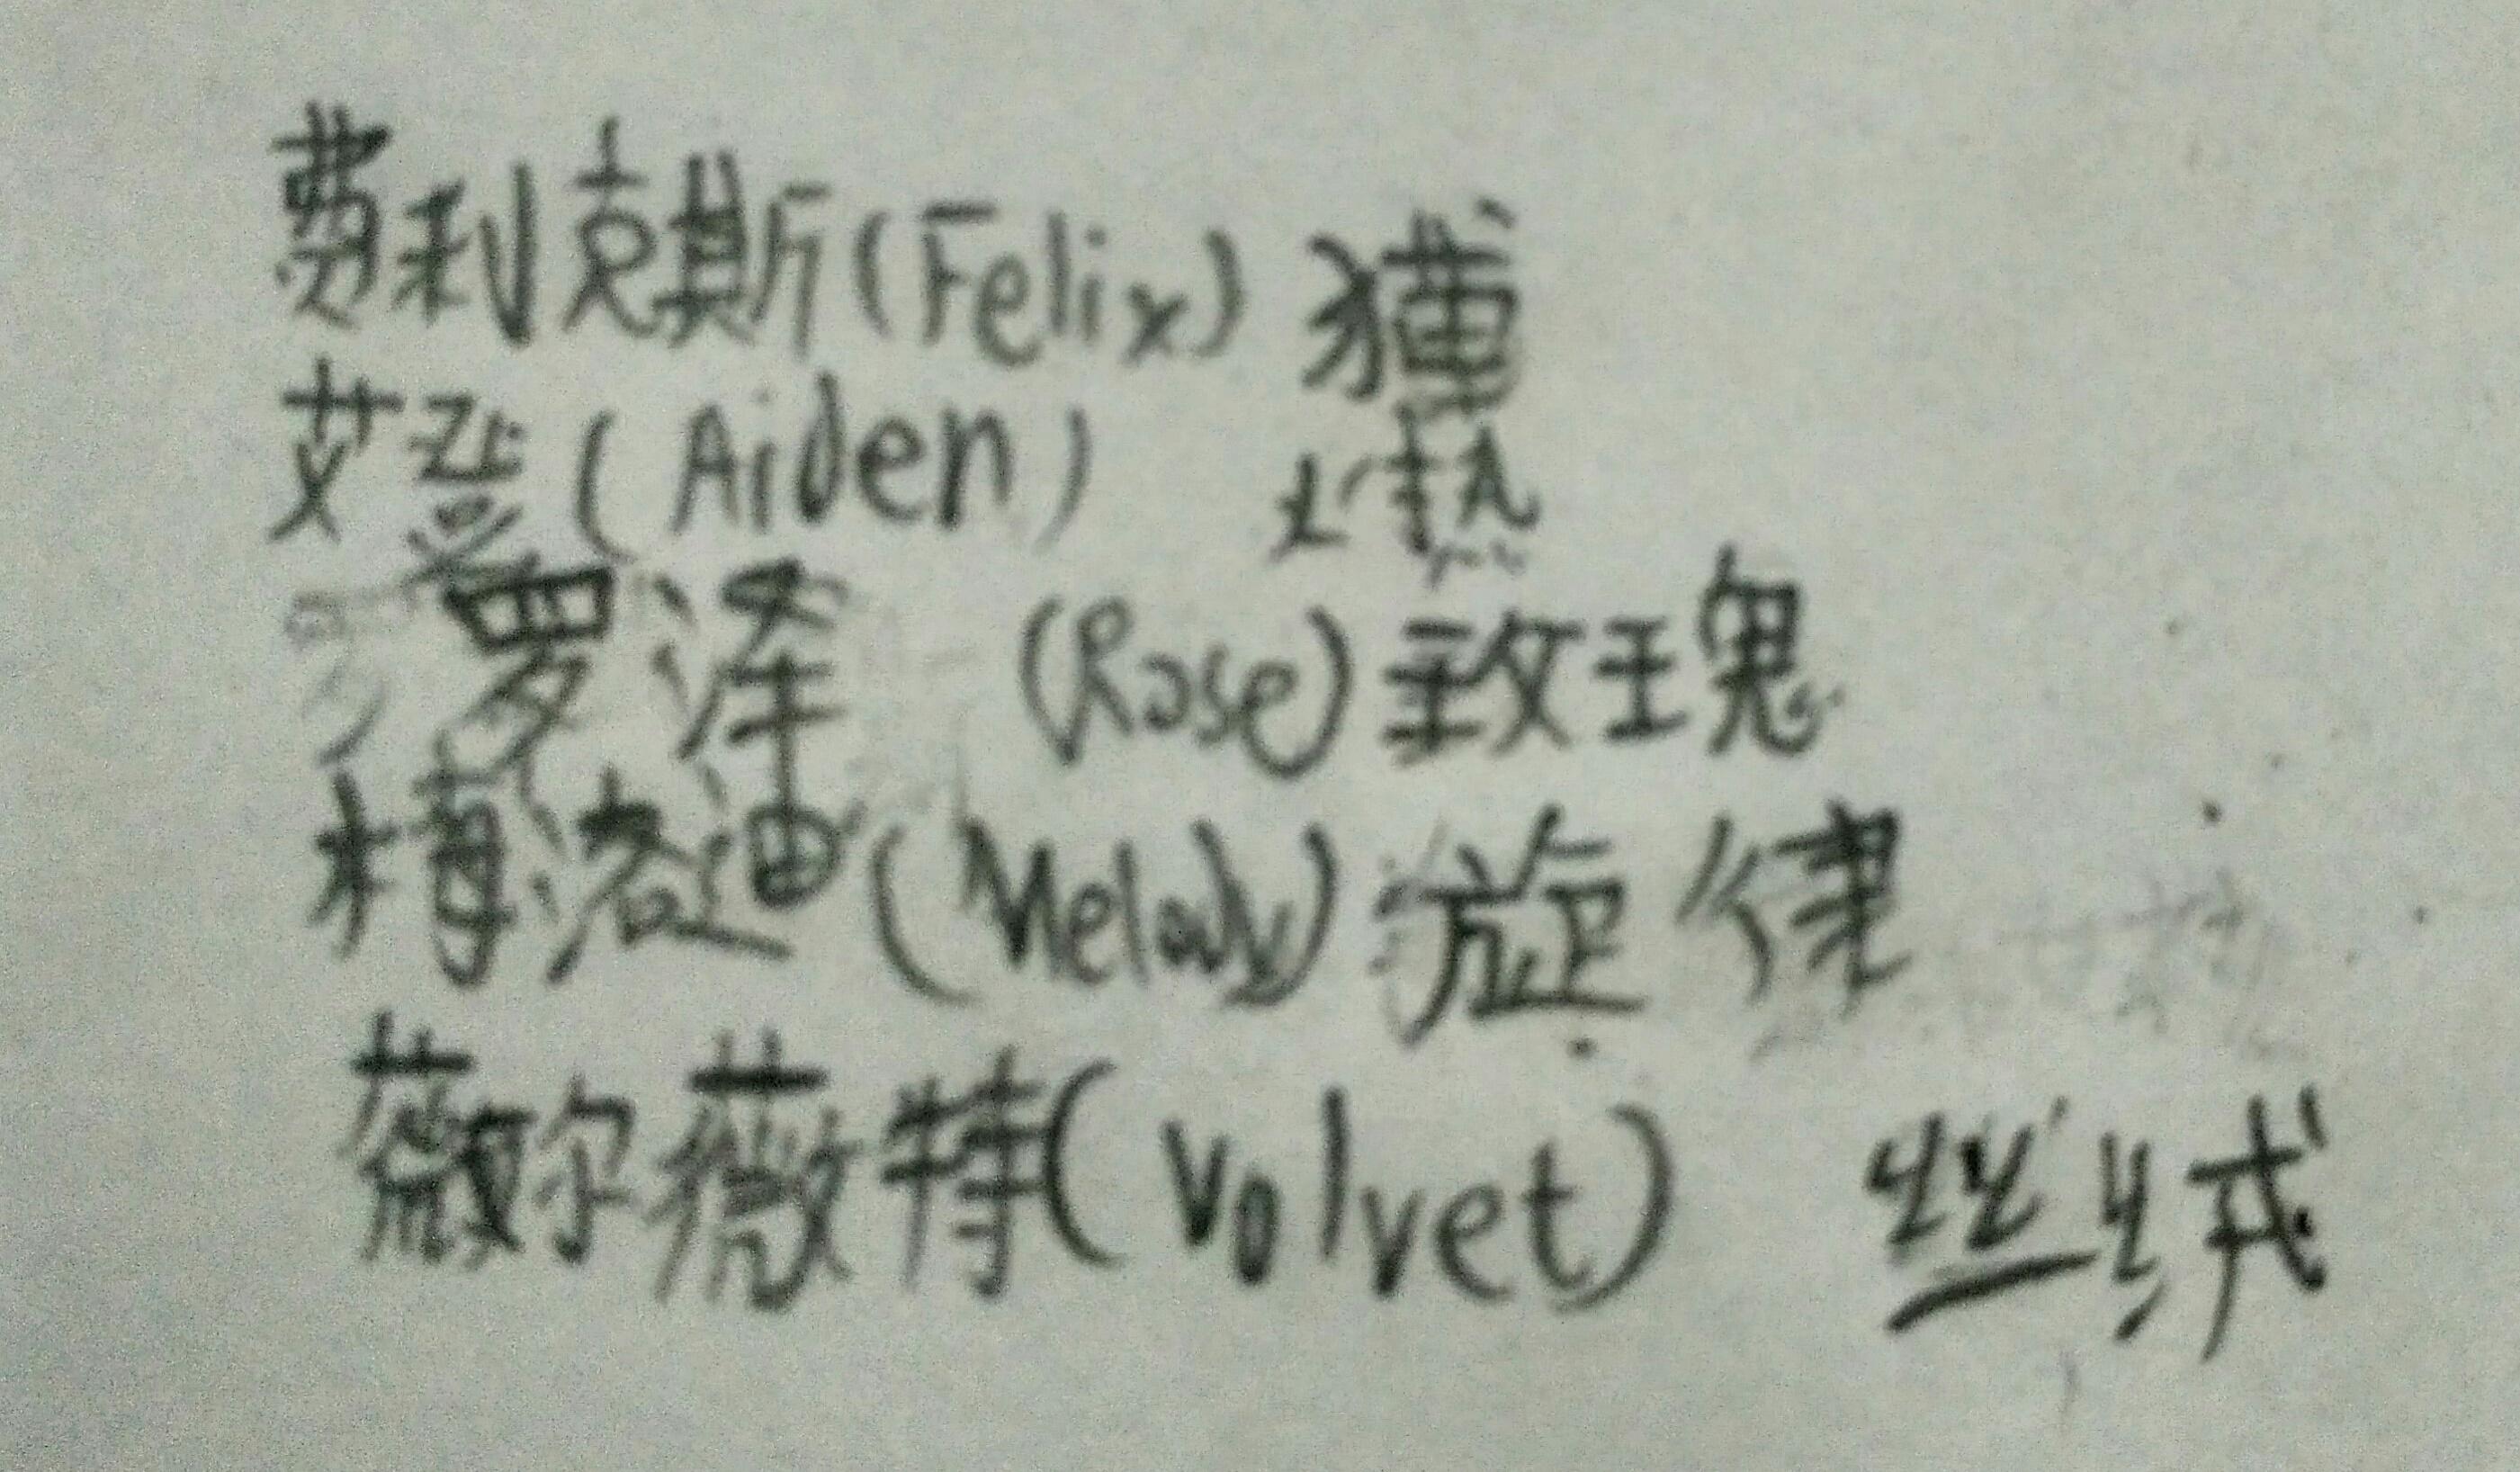 费利克斯(Felix) 猫
艾登(Aiden) 火热
罗泽 (Rose) 玫瑰
梅洛迪(Melody) 旋律
薇尔薇特(Volvet) 丝绒